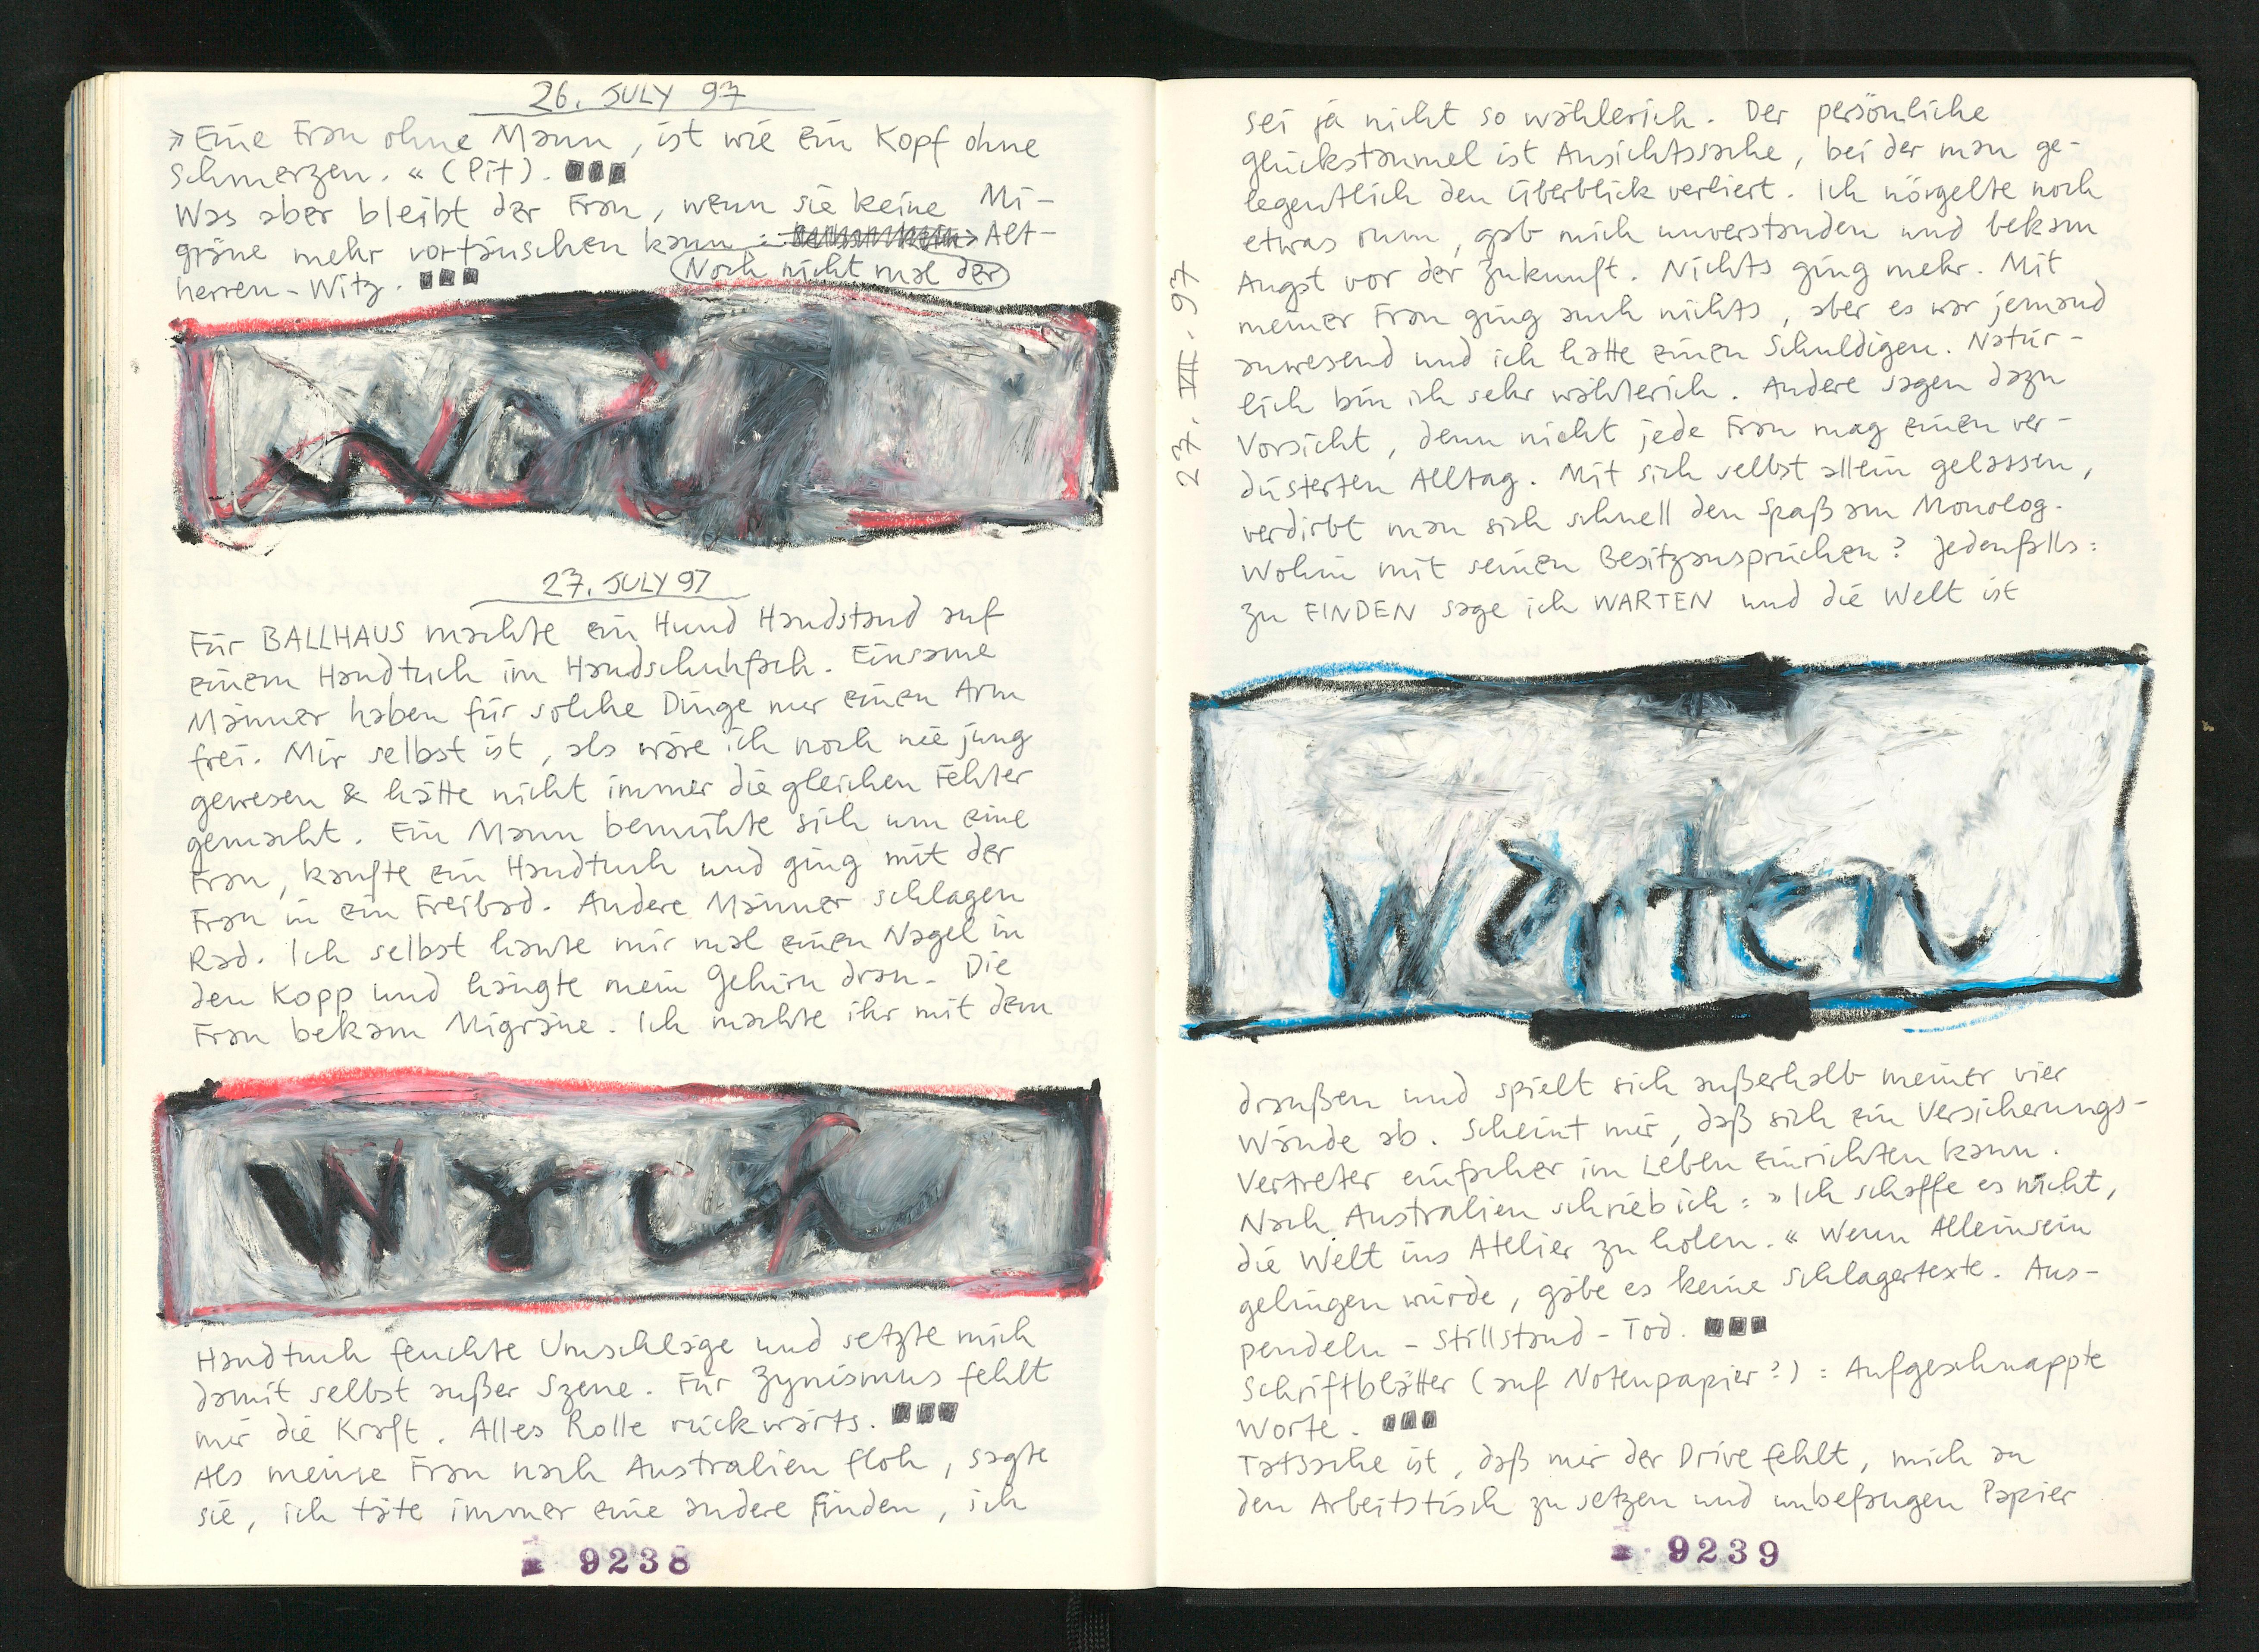 26. JULY 97
»Eine Frau ohne Mann, ist wie ein Kopf ohne
Schmerzen.« (Pit).
Was aber bleibt der Frau, wenn sie keine Mi-
gräne mehr vortäuschen kann: Alt-
Noch nicht mal der
herren-Witz.
27. JULY 97
Für BALLHAUS machte ein Hund Handstand auf
einem Handtuch im Handschuhfach. Einsame
Männer haben für solche Dinge nur einen Arm
frei. Mir selbst ist, als wäre ich noch nie jung
gewesen & hätte nicht immer die gleichen Fehler
gemacht. Ein Mann bemühte sich um eine
Frau, kaufte ein Handtuch und ging mit der
Frau in ein Freibad. Andere Männer schlagen
Rad. Ich selbst haute mir mal einen Nagel in
den Kopp und hängte mein Gehirn dran. Die
Frau bekam Migräne. Ich machte ihr mit dem
Handtuch feuchte Umschläge und setzte mich
damit selbst außer Szene. Für Zynismus fehlt
mir die Kraft. Alles Rolle rückwärts.
Als meine Frau nach Australien floh, sagte
sie, ich täte immer eine andere finden, ich
9238
27. VII. 97
sei ja nicht so wählerich. Der persönliche
Glückstaumel ist Ansichtssache, bei der man ge-
legentlich den Überblick verliert. Ich nörgelte noch
etwas rum, gab mich unverstanden und bekam
Angst vor der Zukunft. Nichts ging mehr. Mit
meiner Frau ging auch nichts, aber es war jemand
anwesend und ich hatte einen Schuldigen. Natür-
lich bin ich sehr wählerich. Andere sagen dazu
Vorsicht, denn nicht jede Frau mag einen ver-
düsterten Alltag. Mit sich selbst allein gelassen,
verdirbt man sich schnell den Spaß am Monolog.
Wohin mit seinen Besitzansprüchen? Jedenfalls:
zu FINDEN sage ich WARTEN und die Welt ist
warten
draußen und spielt sich außerhalb meiner vier
Wände ab. Scheint mir, daß sich ein Versicherungs-
Vertreter einfacher im Leben einrichten kann.
Nach Australien schrieb ich: »Ich schaffe es nicht,
die Welt ins Atelier zu holen.« Wenn Alleinsein
gelingen würde, gäbe es keine Schlagertexte. Aus-
pendeln - Stillstand - Tod.
Schriftblätter (auf Notenpapier?): Aufgeschnappte
Worte.
Tatsache ist, daß mir der Drive fehlt, mich an
den Arbeitstisch zu setzen und unbefangen Papier
9239